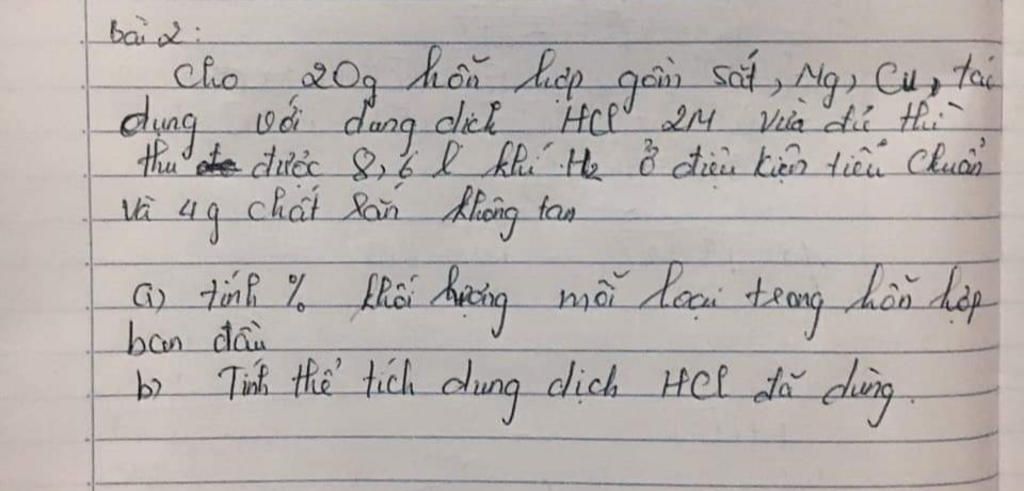 bài 2:
Cho 20g hỗn hợp gồm sắt, Mg, Cu, tác
dụng với dung dịch HCl 2M vừa đủ thì
thu được 8,6 l khí H2 ở điều kiện tiêu chuẩn
và 4g chất rắn không tan
a) tính % khối lượng mỗi loại trong hỗn hợp
ban đầu
b) Tính thể tích dung dịch HCl đã dùng.